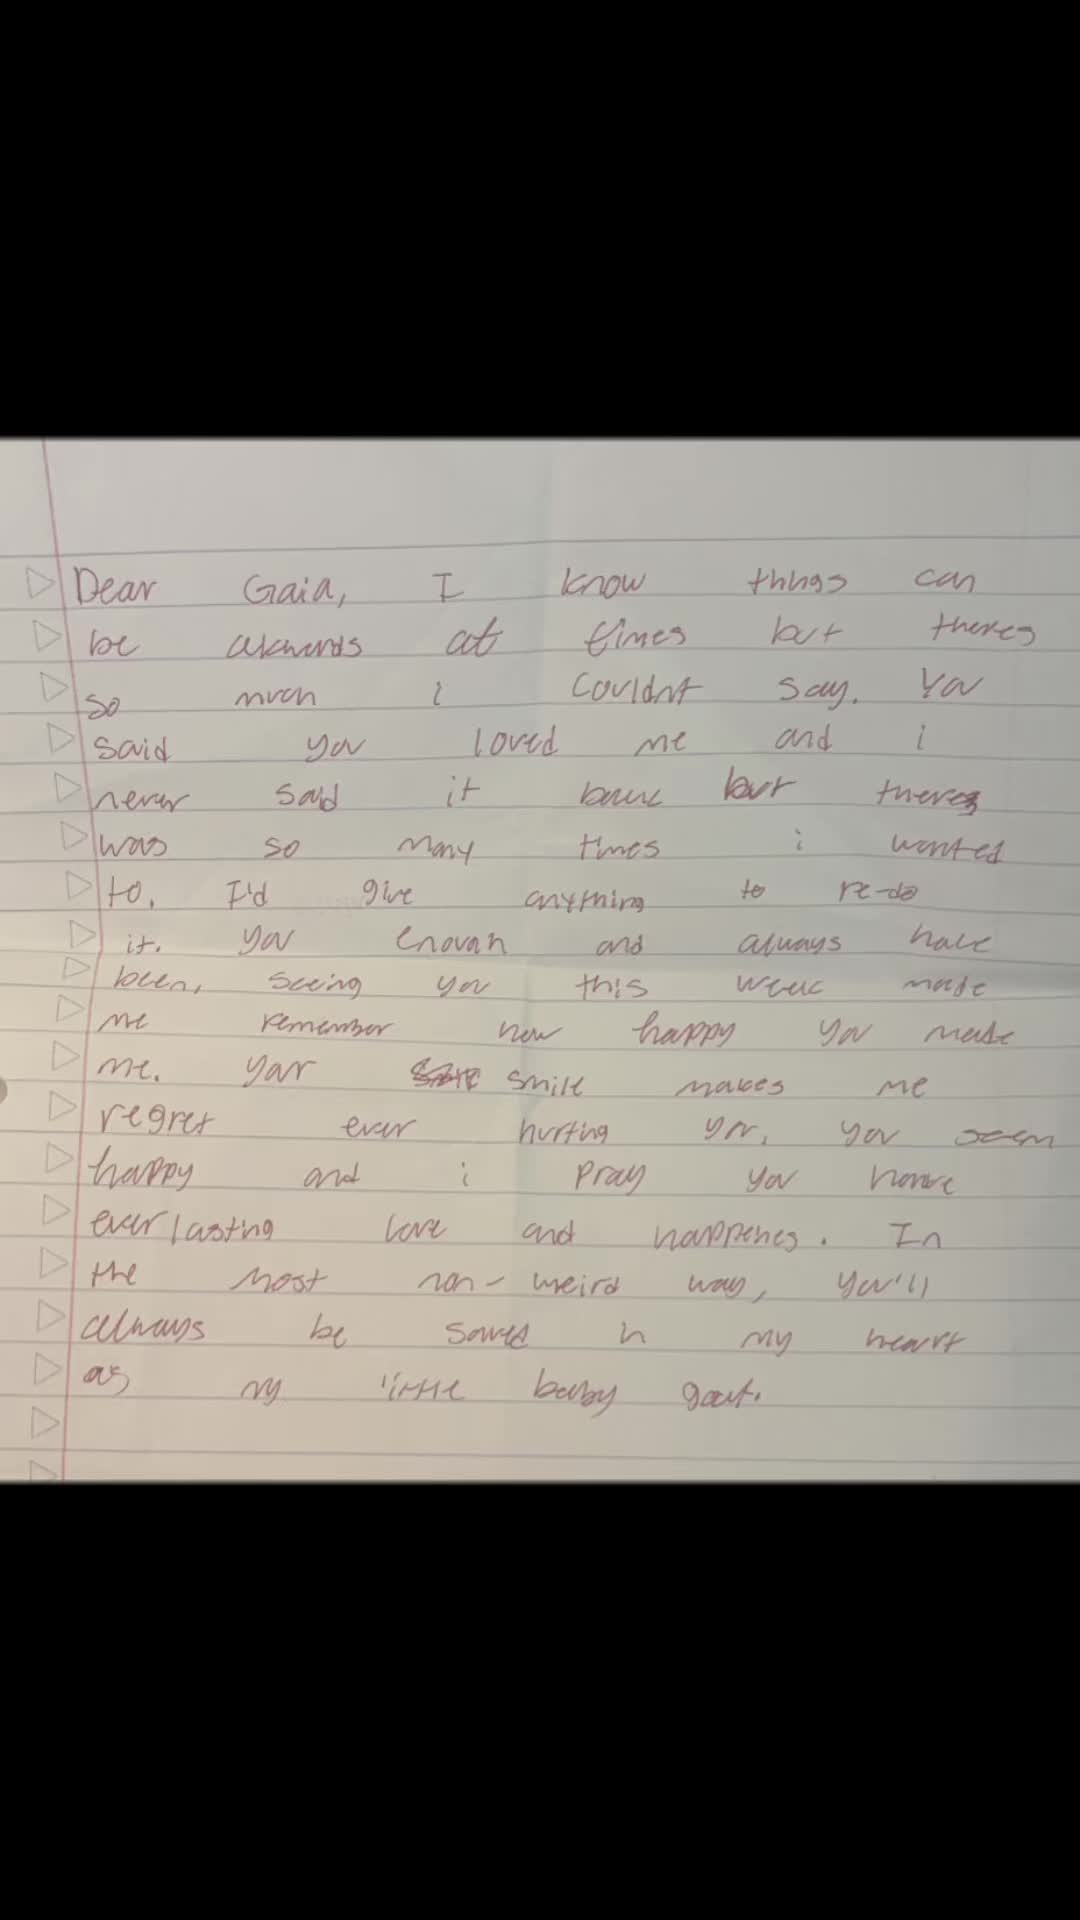 Dear Gaia, I know things can
be akwards at times but theres
so much i couldnt say. You
said you loved me and i
never said it back but theres
was so many times i wanted
to. I'd give anything to re-do
it. you enough and always have
been, seeing you this week made
me remember how happy you made
me. your smile makes me
regret ever hurting you, you seem
happy and i pray you have
everlasting love and happenes. In
the most non-weird way, you'll
always be saved in my heart
as my little baby goat.